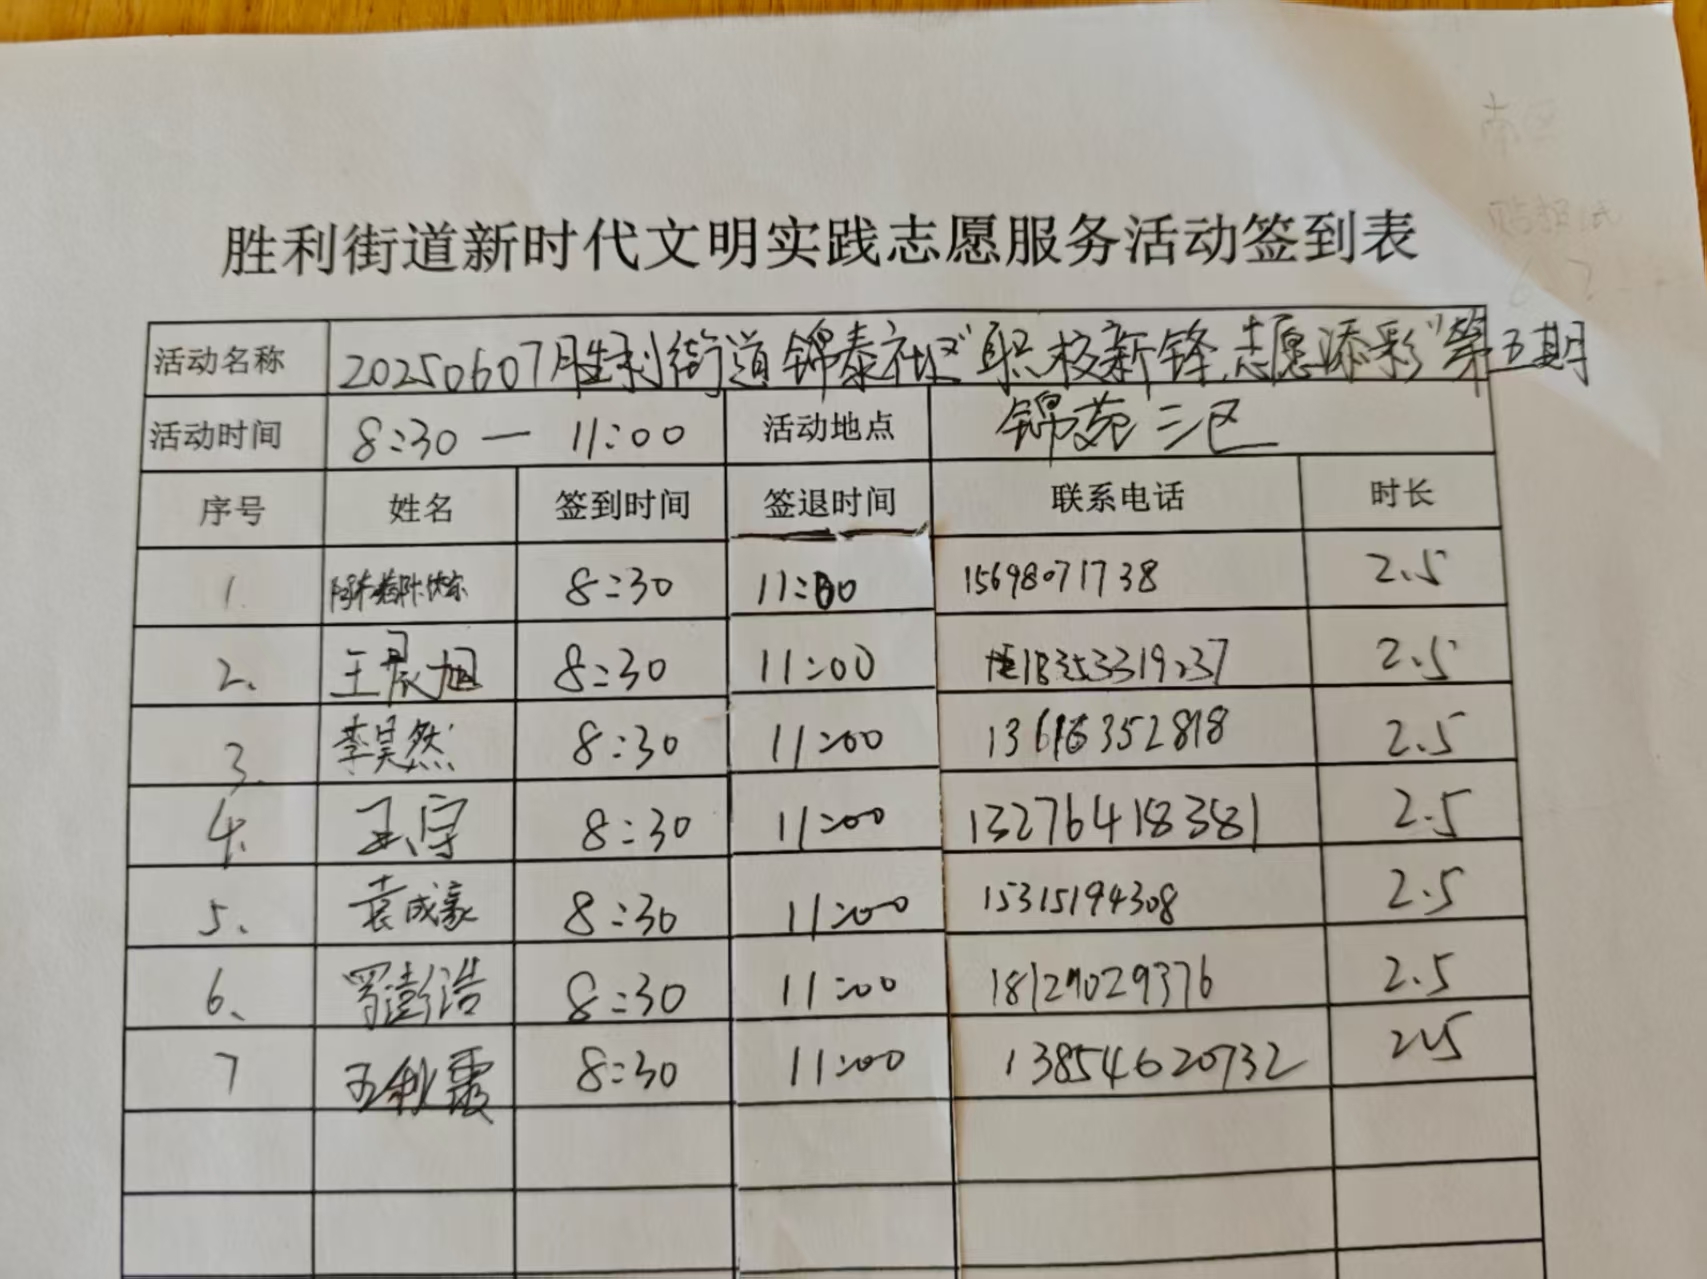 胜利街道新时代文明实践志愿服务活动签到表
活动名称 20250607胜利街道锦泰社区"职校新锋,志愿添彩"第五期
活动时间 8:30—11:00 活动地点 锦苑三区
序号 姓名 签到时间 签退时间 联系电话 时长
1. 8:30 11:00 15698071738 2.5
2. 王晨旭 8:30 11:00 18353319237 2.5
3. 李昊然 8:30 11:00 2.5
4. 8:30 11:00 13276418381 2.5
5. 袁成豪 8:30 11:00 15315194308 2.5
6. 8:30 11:00 2.5
7 王秋霞 8:30 11:00 13854620732 2.5
南区